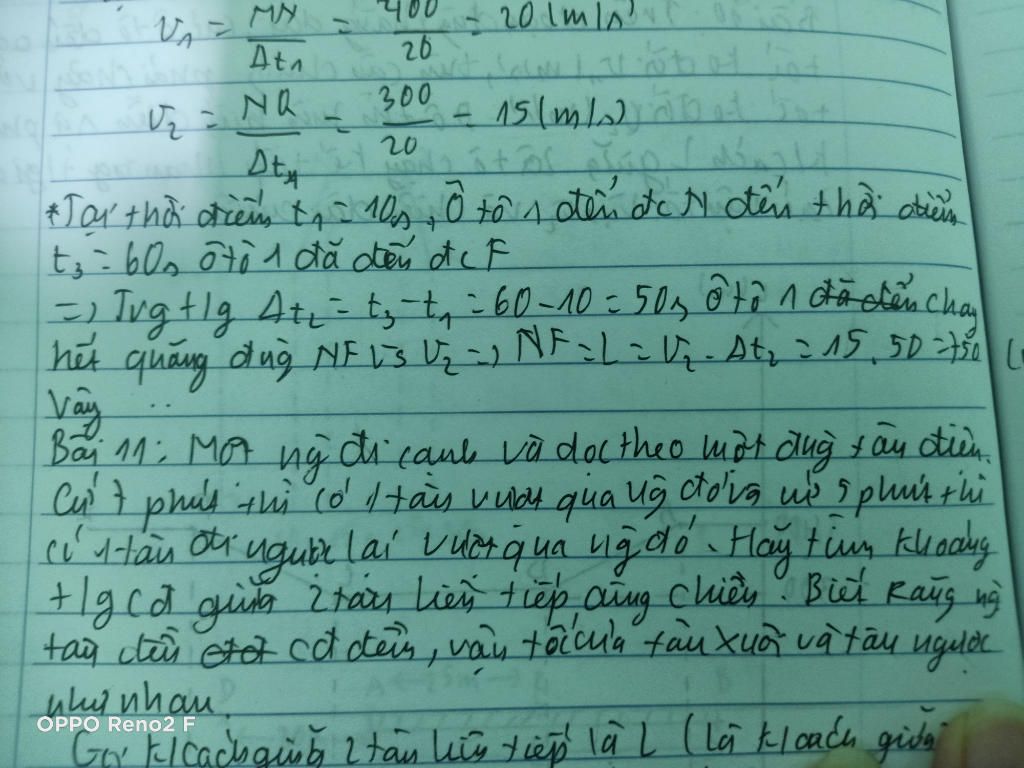 V₁ = MN/Δt₁ = 400/20 = 20 (m/s)
V₂ = NQ/Δt₁ = 300/20 = 15 (m/s)
*Tại thời điểm t₁ = 10s, Ô tô 1 đến đc N đến thời điểm
t₃ = 60s ôtô 1 đã đến đc F
=) Trg tg Δt₂ = t₃ - t₁ = 60 - 10 = 50s ôtô 1 đã đến chạy
hết quãng đng NF vs V₂ =) NF = L = V₂ . Δt₂ = 15 . 50 = 750 (
Vậy ..
Bài 11: Một ng đi cạnh và dọc theo một đng tàu điện.
Cứ 7 phút thì có 1 tàu vượt qua ng đó và cứ 5 phút thì
có 1 tàu đi ngược lại vượt qua ng đó. Hãy tìm khoảng
tg cđ giữa 2 tàu liên tiếp cùng chiều. Biết rằng ng
tàu đều cđ đều, vận tốc của tàu xuôi và tàu ngược
như nhau.
OPPO Reno2 F
Gọi k/cách giữa 2 tàu liên tiếp là L (là k/cách giữa